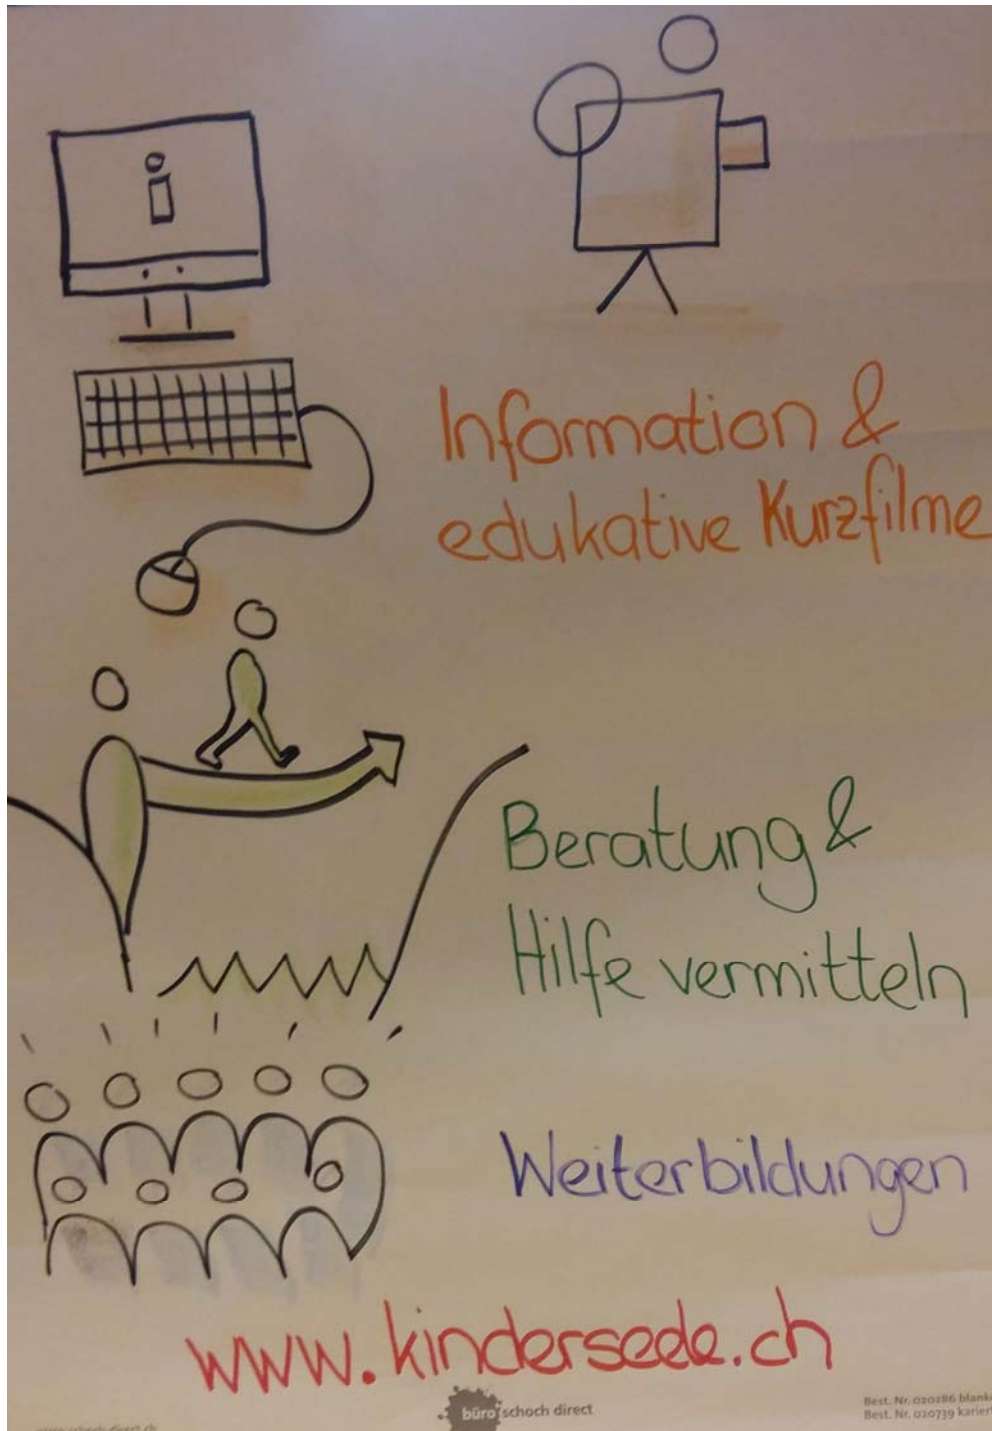 i
Information &
edukative Kurzfilme
Beratung &
Hilfe vermitteln
Weiterbildungen
www.kindersede.ch
büro schoch direct
Best. Nr. 020286 blank
Best. Nr. 020739 kariert